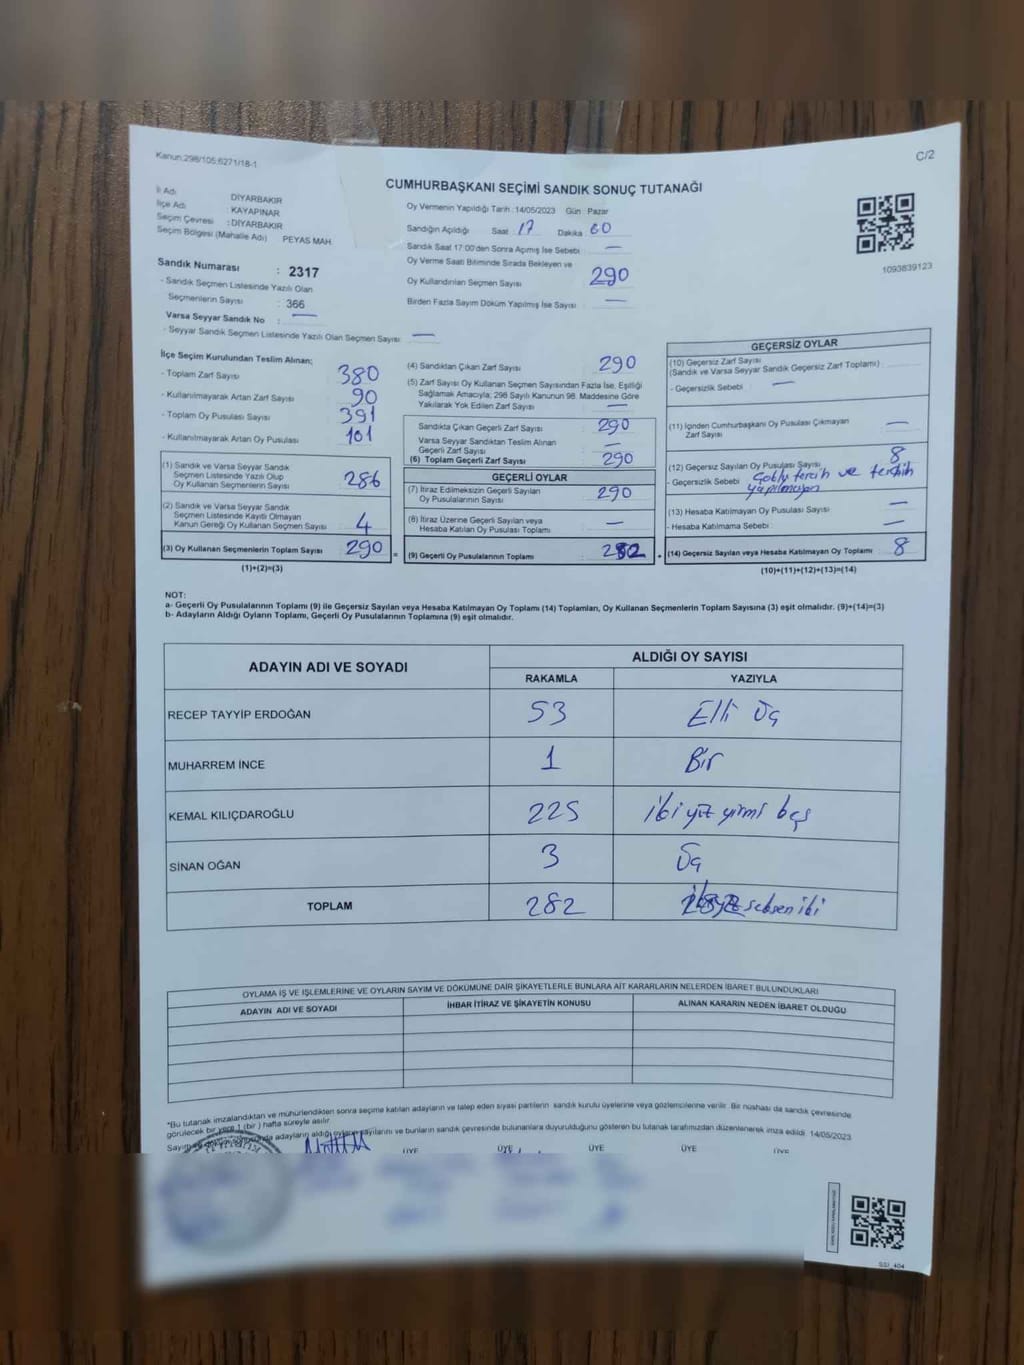 Kanun:298/105;6271/18-1
C/2
CUMHURBAŞKANI SEÇİMİ SANDIK SONUÇ TUTANAĞI
İl Adı DİYARBAKIR
İlçe Adı : KAYAPINAR
Seçim Çevresi : DİYARBAKIR
Seçim Bölgesi (Mahalle Adı) PEYAS MAH.
Sandık Numarası : 2317
- Sandık Seçmen Listesinde Yazılı Olan
Seçmenlerin Sayısı : 366
Varsa Seyyar Sandık No : —
- Seyyar Sandık Seçmen Listesinde Yazılı Olan Seçmen Sayısı: —
Oy Vermenin Yapıldığı Tarih :14/05/2023 Gün : Pazar
Sandığın Açıldığı Saat 17 Dakika 60
Sandık Saat 17:00'den Sonra Açılmış İse Sebebi —
Oy Verme Saati Bitiminde Sırada Bekleyen ve
Oy Kullandırılan Seçmen Sayısı 290
Birden Fazla Sayım Döküm Yapılmış İse Sayısı —
1093839123
İlçe Seçim Kurulundan Teslim Alınan;
- Toplam Zarf Sayısı 380
- Kullanılmayarak Artan Zarf Sayısı 90
- Toplam Oy Pusulası Sayısı 391
- Kullanılmayarak Artan Oy Pusulası 101
(1) Sandık ve Varsa Seyyar Sandık
Seçmen Listesinde Yazılı Olup
Oy Kullanan Seçmenlerin Sayısı 286
(2) Sandık ve Varsa Seyyar Sandık
Seçmen Listesinde Kayıtlı Olmayan
Kanun Gereği Oy Kullanan Seçmen Sayısı 4
(3) Oy Kullanan Seçmenlerin Toplam Sayısı 290 =
(1)+(2)=(3)
(4) Sandıktan Çıkan Zarf Sayısı 290
(5) Zarf Sayısı Oy Kullanan Seçmen Sayısından Fazla İse, Eşitliği
Sağlamak Amacıyla; 298 Sayılı Kanunun 98. Maddesine Göre
Yakılarak Yok Edilen Zarf Sayısı —
Sandıkta Çıkan Geçerli Zarf Sayısı 290
Varsa Seyyar Sandıktan Teslim Alınan
Geçerli Zarf Sayısı —
(6) Toplam Geçerli Zarf Sayısı 290
GEÇERLİ OYLAR
(7) İtiraz Edilmeksizin Geçerli Sayılan
Oy Pusulalarının Sayısı 290
(8) İtiraz Üzerine Geçerli Sayılan veya
Hesaba Katılan Oy Pusulası Toplamı —
(9) Geçerli Oy Pusulalarının Toplamı 282 +
GEÇERSİZ OYLAR
(10) Geçersiz Zarf Sayısı
(Sandık ve Varsa Seyyar Sandık Geçersiz Zarf Toplamı)
- Geçersizlik Sebebi : —
(11) İçinden Cumhurbaşkanı Oy Pusulası Çıkmayan
Zarf Sayısı —
(12) Geçersiz Sayılan Oy Pusulası Sayısı 8
- Geçersizlik Sebebi Çoklu tercih ve tercih
yapılmayan
(13) Hesaba Katılmayan Oy Pusulası Sayısı —
- Hesaba Katılmama Sebebi —
(14) Geçersiz Sayılan veya Hesaba Katılmayan Oy Toplamı 8
(10)+(11)+(12)+(13)=(14)
NOT:
a- Geçerli Oy Pusulalarının Toplamı (9) ile Geçersiz Sayılan veya Hesaba Katılmayan Oy Toplamı (14) Toplamları, Oy Kullanan Seçmenlerin Toplam Sayısına (3) eşit olmalıdır. (9)+(14)=(3)
b- Adayların Aldığı Oyların Toplamı, Geçerli Oy Pusulalarının Toplamına (9) eşit olmalıdır.
ADAYIN ADI VE SOYADI ALDIĞI OY SAYISI
RAKAMLA YAZIYLA
RECEP TAYYİP ERDOĞAN 53 Elli Üç
MUHARREM İNCE 1 Bir
KEMAL KILIÇDAROĞLU 225 iki yüz yirmi beş
SİNAN OĞAN 3 Üç
TOPLAM 282 seksen iki
OYLAMA İŞ VE İŞLEMLERİNE VE OYLARIN SAYIM VE DÖKÜMÜNE DAİR ŞİKAYETLERLE BUNLARA AİT KARARLARIN NELERDEN İBARET BULUNDUKLARI
ADAYIN ADI VE SOYADI İHBAR İTİRAZ VE ŞİKAYETİN KONUSU ALINAN KARARIN NEDEN İBARET OLDUĞU
*Bu tutanak imzalandıktan ve mühürlendikten sonra seçime katılan adayların ve talep eden siyasi partilerin sandık kurulu üyelerine veya gözlemcilerine verilir. Bir nüshası da sandık çevresinde
görülecek bir yere 1 (bir) hafta süreyle asılır.
adayların aldığı oyların sayılarını ve bunların sandık çevresinde bulunanlara duyurulduğunu gösteren bu tutanak tarafımızdan düzenlenerek imza edildi. 14/05/2023
ÜYE ÜYE ÜYE ÜYE ÜYE
SSI_404